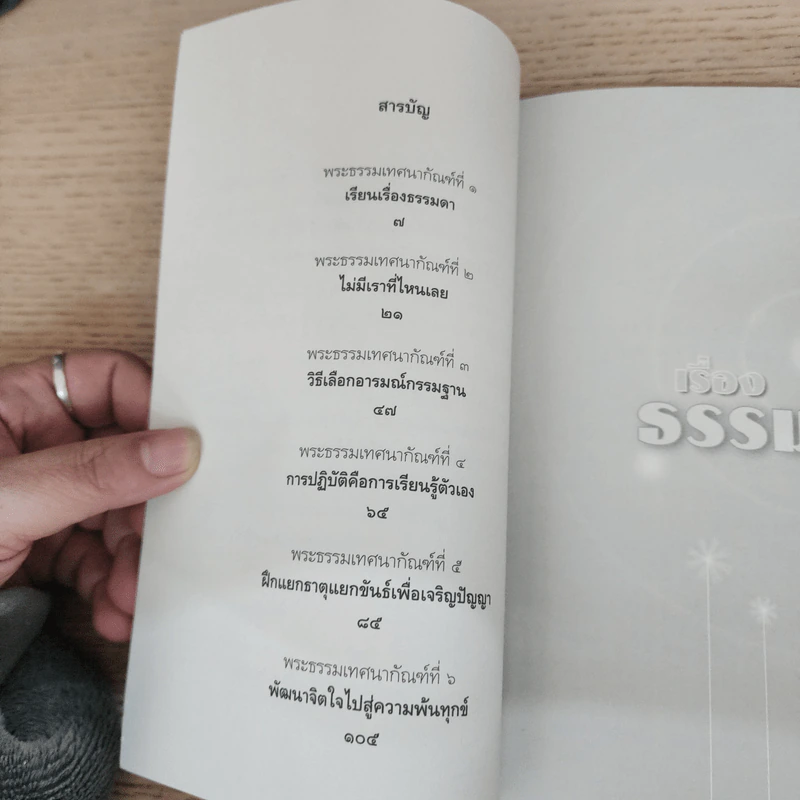 สารบัญ
พระธรรมเทศนากัณฑ์ที่ ๑
เรียนเรื่องธรรมดา
๗
พระธรรมเทศนากัณฑ์ที่ ๒
ไม่มีเราที่ไหนเลย
๒๑
พระธรรมเทศนากัณฑ์ที่ ๓
วิธีเลือกอารมณ์กรรมฐาน
๔๗
พระธรรมเทศนากัณฑ์ที่ ๔
การปฏิบัติคือการเรียนรู้ตัวเอง
๖๕
พระธรรมเทศนากัณฑ์ที่ ๕
ฝึกแยกธาตุแยกขันธ์เพื่อเจริญปัญญา
๘๕
พระธรรมเทศนากัณฑ์ที่ ๖
พัฒนาจิตใจไปสู่ความพ้นทุกข์
๑๐๕
เรื่อง
ธรรม